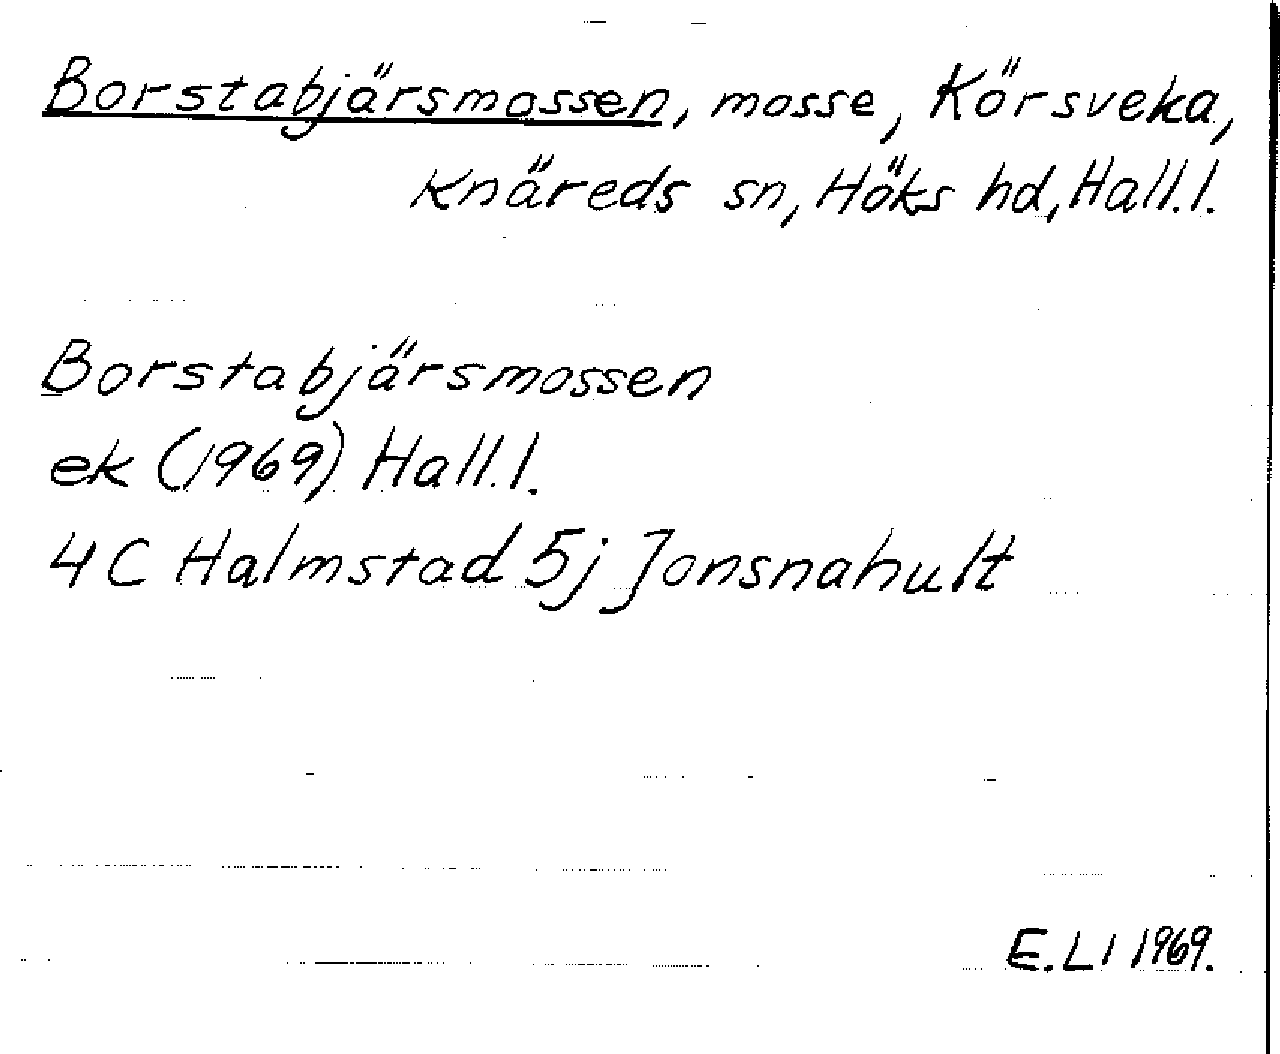 Borstabjärsmossen, mosse, Körsveka,
Knäreds sn, Höks hd, Hall.l.
Borstabjärsmossen
ek (1969) Hall.l.
4C Halmstad 5j Jonsnahult
E.LI 1969.